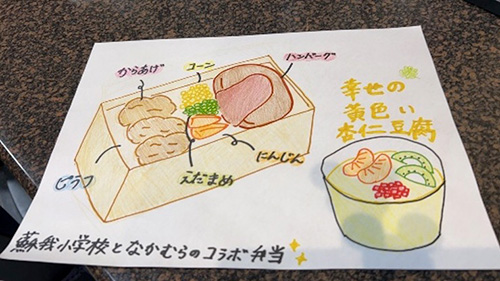 からあげ
コーン
ハンバーグ
ピラフ
えだまめ
にんじん
幸せの
黄色い
杏仁豆腐
蘇我小学校となかむらのコラボ弁当